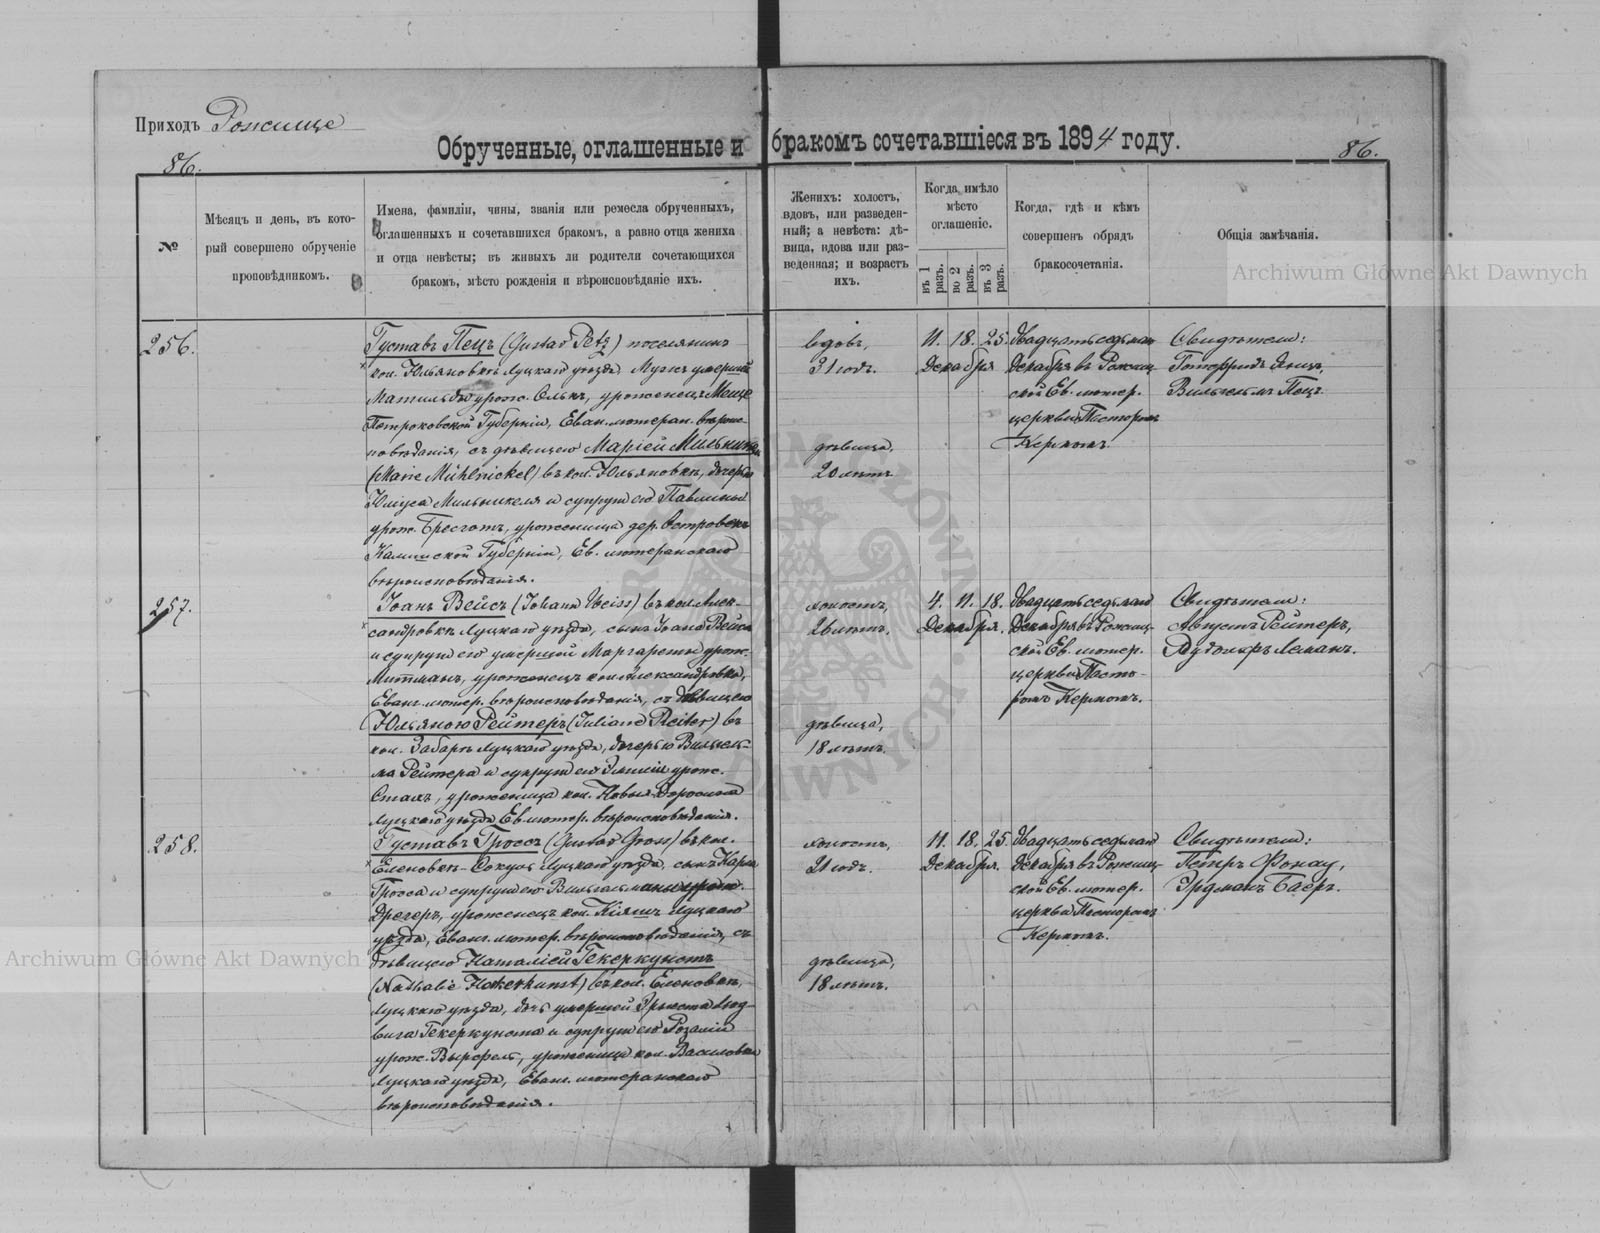 Приходъ Рожище
86.
Обрученные, оглашенные и бракомъ сочетавшіеся въ 1894 году.
86.
№
Мѣсяцъ и день, въ кото-
рый совершено обрученіе
проповѣдникомъ.
Имена, фамиліи, чины, званія или ремесла обрученныхъ,
оглашенныхъ и сочетавшихся бракомъ, а равно отца жениха
и отца невѣсты; въ живыхъ ли родители сочетающихся
бракомъ, мѣсто рожденія и вѣроисповѣданіе ихъ.
Женихъ: холостъ,
вдовъ, или разведен-
ный; а невѣста: дѣ-
вица, вдова или раз-
веденная; и возрастъ
ихъ.
Когда имѣло
мѣсто
оглашеніе.
въ 1 разъ.
во 2 разъ.
въ 3 разъ.
Когда, гдѣ и кѣмъ
совершенъ обрядъ
бракосочетанія.
Общія замѣчанія.
Archiwum Główne Akt Dawnych
256.
Густавъ Пецъ (Gustav Petz) поселянинъ
кол. Юльяновкѣ Луцкаго уѣзда. Мужъ умершей
Матильды урож. Олькъ, уроженецъ
Петроковской Губерніи, Еван. лютеран. вѣроис-
повѣданія, съ дѣвицею Маріей
(Marie Mühlnickel) въ кол. Юльяновкѣ, дочерью
Юлиуса Мильникеля и супруги его Павлины
урож. уроженица дер.
Калишской Губерніи, Ев. лютеранскаго
вѣроисповѣданія.
вдовъ,
31 годъ.
дѣвица,
20 лѣтъ
11. 18. 25.
Декабря
Двадцать седьмаго
Декабря въ Рожищ-
ской Ев. лютер.
церкви Пасторомъ
Кермомъ.
Свидѣтели:
Готфридъ
Вильгельмъ Пецъ.
257.
Іоанъ Вейсъ (Johann Weiss) въ кол. Алек-
сандровкѣ Луцкаго уѣзда, сынъ Іоана Вейса
и супруги его умершей Маргареты урож.
Митманъ, уроженецъ кол. Александровка,
Еван. лютер. вѣроисповѣданія, съ дѣвицею
Юльяною Рейтеръ (Juliane Reiter) въ
кол. Забара Луцкаго уѣзда, дочерью Вильгель-
ма Рейтера и супруги его Эмиліи урож.
Сталъ, уроженица кол. Новыя
Луцкаго уѣзда Ев. лютер. вѣроисповѣданія.
холостъ,
26 лѣтъ.
дѣвица,
18 лѣтъ.
4. 11. 18.
Декабря.
Двадцать седьмаго
Декабря въ Рожищ-
ской Ев. лютер.
церкви Пасто-
ромъ Кермомъ.
Свидѣтели:
Августъ Рейтеръ,
Рудольфъ Леманъ.
258.
Густавъ Гроссъ (Gustav Gross) въ кол.
Еленовкѣ Луцкаго уѣзда, сынъ Карла
Гросса и супруги его Вильгельмины урож.
Дрегеръ, уроженецъ кол. Луцкаго
уѣзда, Еванг. лютер. вѣроисповѣданія, съ
дѣвицею Наталіей Гекеркунстъ
(Nathalie Hekerkunst) въ кол. Еленовкѣ,
Луцкаго уѣзда, дочь Эрнста Люд-
вига Гекеркунста и супруги его Розаліи
урож. уроженица кол. Василовка
Луцкаго уѣзда, Еванг. лютеранскаго
вѣроисповѣданія.
холостъ,
21 годъ.
дѣвица,
18 лѣтъ.
11. 18. 25.
Декабря.
Двадцать седьмаго
Декабря въ Рожищ-
ской Ев. лютер.
церкви Пасторомъ
Кермомъ.
Свидѣтели:
Петръ Фонау,
Эрдманъ Баеръ.
Archiwum Główne Akt Dawnych